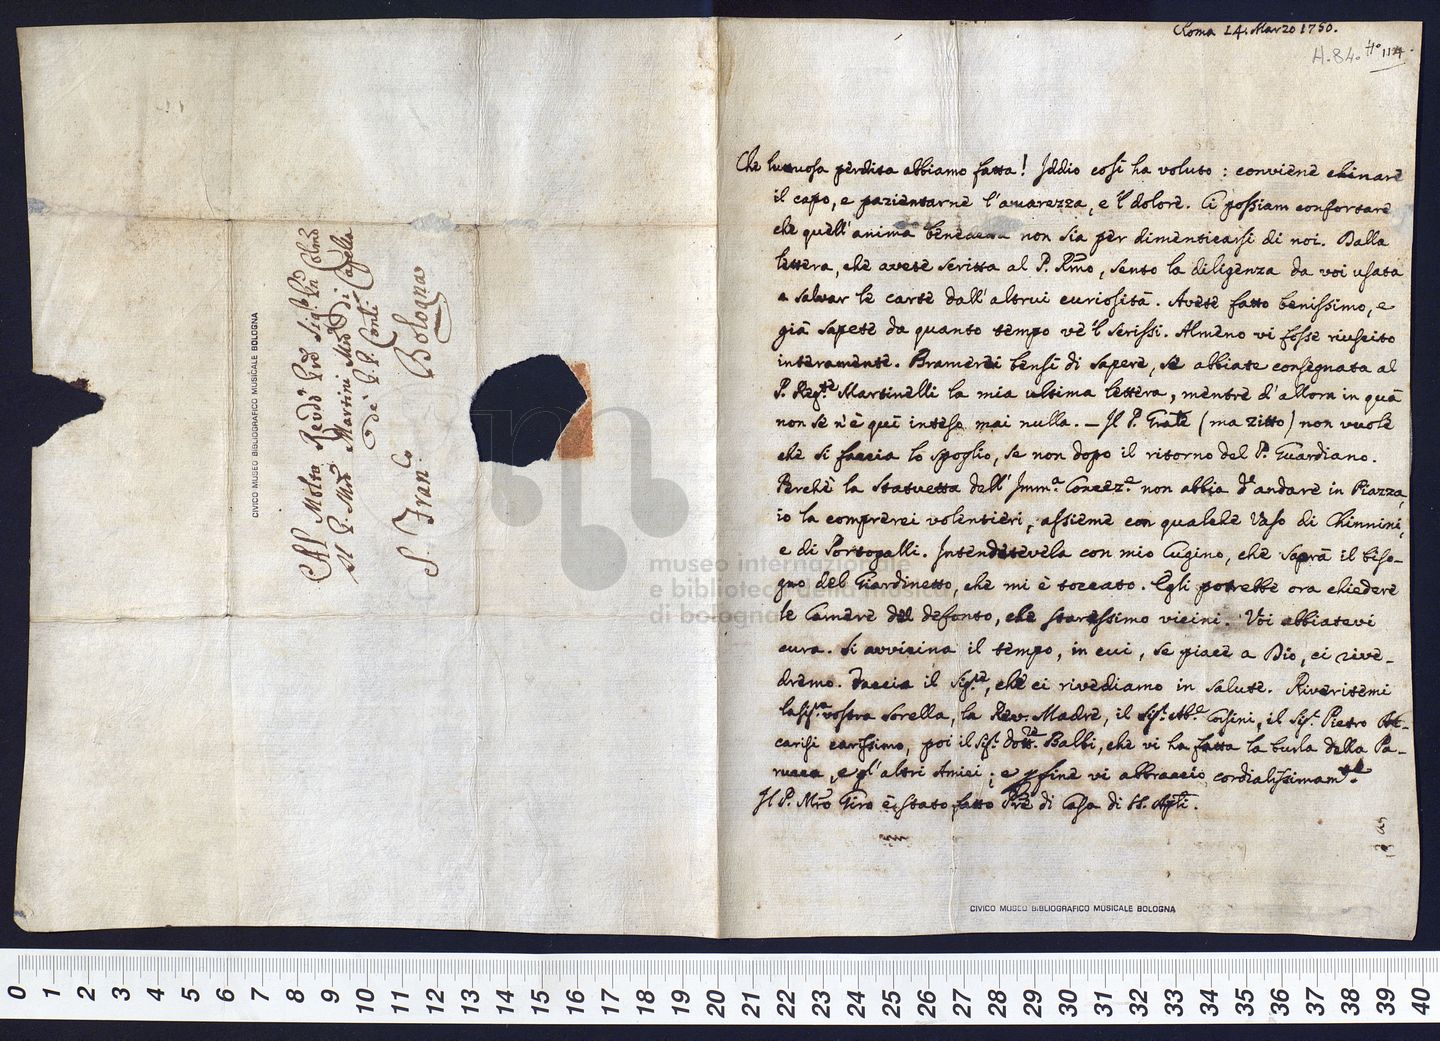 Al Molto Revdo Pre Sigr. Pn Colmo
Il P. Mro Martini Mro di Capella
de' P.P. Conti
S. Franco Bologna
CIVICO MUSEO BIBLIOGRAFICO MUSICALE BOLOGNA
Roma 14. Marzo 1750.
H.84. 114
Che luttuosa perdita abbiamo fatta! Iddio così ha voluto: conviene chinare
il capo, e pazientarne l'amarezza, e 'l dolore. Ci possiam confortare
che quell'anima benedetta non sia per dimenticarsi di noi. Dalla
lettera, che avete scritta al P. Rmo, sento la diligenza da voi usata
a salvar le carte dall'altrui curiosità. Avete fatto benissimo, e
già sapete da quanto tempo ve 'l scrissi. Almeno vi fosse riuscito
interamente. Bramerei bensì di sapere, se abbiate consegnata al
P. Regte Martinelli la mia ultima lettera, mentre d'allora in quà
non se n'è quì inteso mai nulla. – Il P. Frate (ma zitto) non vuole
che si faccia lo spoglio, se non dopo il ritorno del P. Guardiano.
Perchè la statuetta dell'Imma Conceze non abbia d'andare in Piazza,
io la comprerei volentieri, assieme con qualche Vaso di Chinnini,
e di Portogalli. Intendetevela con mio Cugino, che saprà il biso-
gno del Giardinetto, che mi è toccato. Egli potrebbe ora chiedere
le Camere del defonto, che staressimo vicini. Voi abbiatevi
cura. Si avvicina il tempo, in cui, se piace a Dio, ci rive-
dremo. Faccia il Sigre, che ci rivediamo in salute. Riveritemi
la Sigra vostra sorella, la Rev. Madre, il Sigr. Abe Corsini, il Sigr. Pietro
carissimo, poi il Sigr. Dottre Balbi, che vi ha fatta la burla della Pa-
rucca, e gl'altri Amici; e pfine vi abbraccio cordialissimamte.
Il P. Mro Giro è stato fatto Pre di Casa di SS. Apli.
museo internazionale
e biblioteca della musica
di bologna
CIVICO MUSEO BIBLIOGRAFICO MUSICALE BOLOGNA
0 1 2 3 4 5 6 7 8 9 10 11 12 13 14 15 16 17 18 19 20 21 22 23 24 25 26 27 28 29 30 31 32 33 34 35 36 37 38 39 40